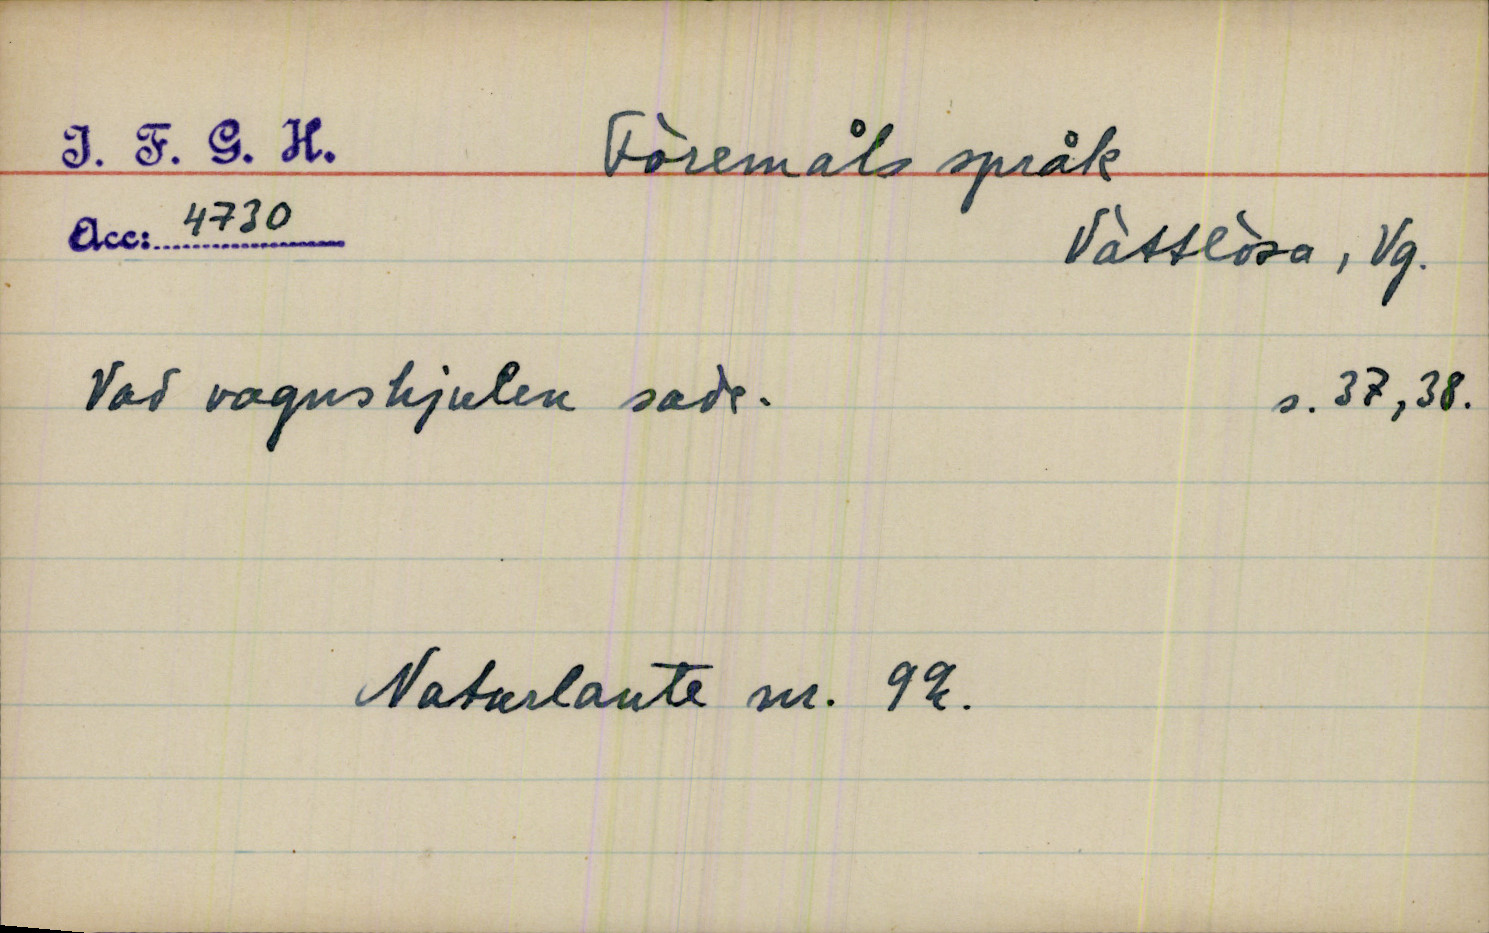 I. F. G. H.
Föremåls språk
Acc: 4730
Vättlösa, Vg.
Vad vagnshjulen sade. s. 37, 38.
Naturlaute nr. 92.